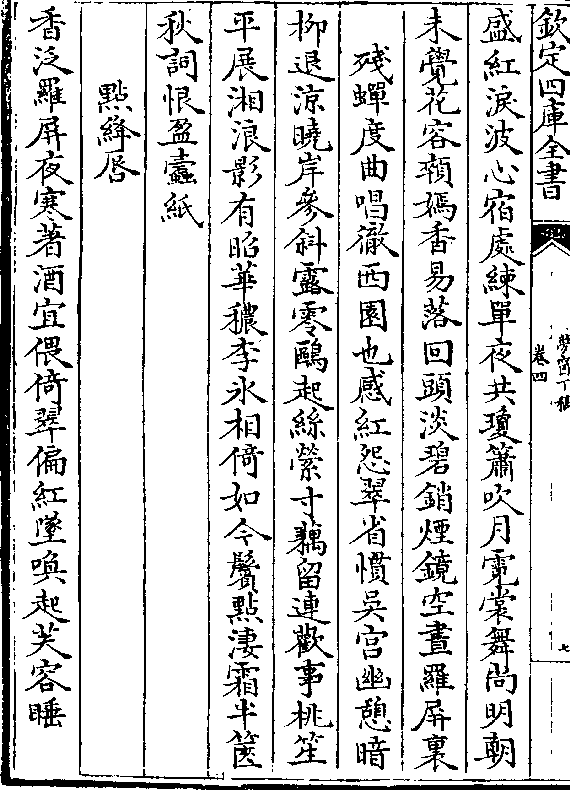 欽定四庫全書
夢窗丁稿
卷四
七
盛紅淚波心宿處練單夜共瓊簫吹月霓裳舞尚明朝
未覺花容頩嫣香易落回頭淡碧銷煙鏡空畫羅屏裏
殘蟬度曲唱徹西園也感紅怨翠省慣吳宮幽憩暗
柳退涼曉岸參斜露零鷗起絲縈寸藕留連歡事桃笙
平展湘浪影有昭華穠李氷相倚如今鬢點凄霜半篋
秋詞恨盈蠹紙
點絳唇
香泛羅屏夜寒著酒宜偎倚翠偏紅墜喚起芙容睡